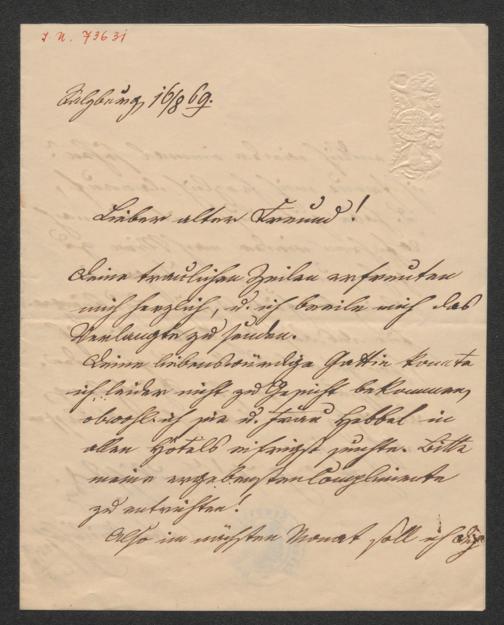 I. N. 73631
Salzburg 16/8 69.
Lieber alter Freund!
Deine traulichen Zeilen erfreuten
mich herzlich, u. ich beeile mich das
Verlangte zu senden.
Deine liebenswürdige Gattin konnte
ich leider nicht zu Gesicht bekommen,
obwohl ich sie u. Frau Hebbel in
allen Hôtels eifrigst suchte. Bitte
meine ergebensten Complimente
zu entrichten!
Also im nächsten Monat soll ich